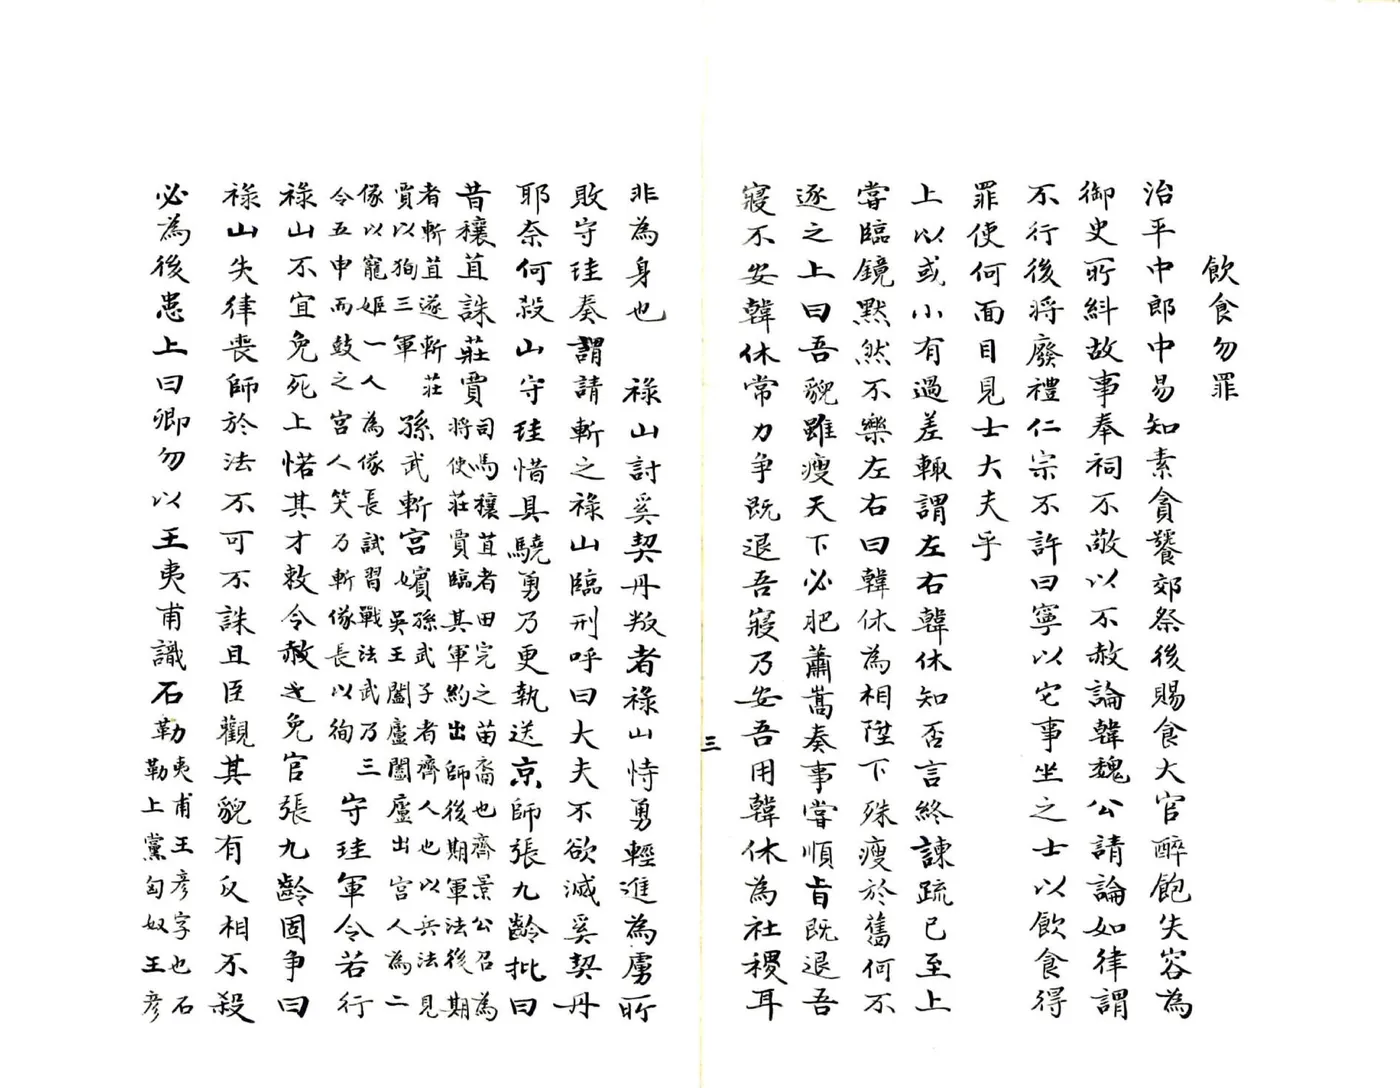 飲食勿罪
治平中郎中易知素貪饕郊祭後賜食大官醉飽失容為
御史所糾故事奉祠不敬以不赦論韓魏公請論如律謂
不行後將廢禮仁宗不許曰寧以它事坐之士以飲食得
罪使何面目見士大夫乎
上以或小有過差輒謂左右韓休知否言終諫疏已至上
嘗臨鏡默然不樂左右曰韓休為相陛下殊瘦於舊何不
逐之上曰吾貌雖瘦天下必肥蕭嵩奏事嘗順旨既退吾
寢不安韓休常力爭既退吾寢乃安吾用韓休為社稷耳
三
非為身也 祿山討奚契丹叛者祿山恃勇輕進為虜所
敗守珪奏謂請斬之祿山臨刑呼曰大夫不欲滅奚契丹
耶奈何殺山守珪惜其驍勇乃更執送京師張九齡批曰
昔穰苴誅莊賈司馬穰苴者田完之苗裔也齊景公召為將使莊賈臨其軍約出師後期軍法後期
者斬苴遂斬莊賈以狥三軍孫武斬宮嬪孫武子者齊人也以兵法見吳王闔廬闔廬出宮人為二
隊以寵姬一人為隊長試習戰法武乃三令五申而鼓之宮人笑乃斬隊長以徇守珪軍令若行
祿山不宜免死上惜其才敕令赦之免官張九齡固爭曰
祿山失律喪師於法不可不誅且臣觀其貌有反相不殺
必為後患上曰卿勿以王夷甫識石勒夷甫王彥字也石勒上黨匈奴王彥